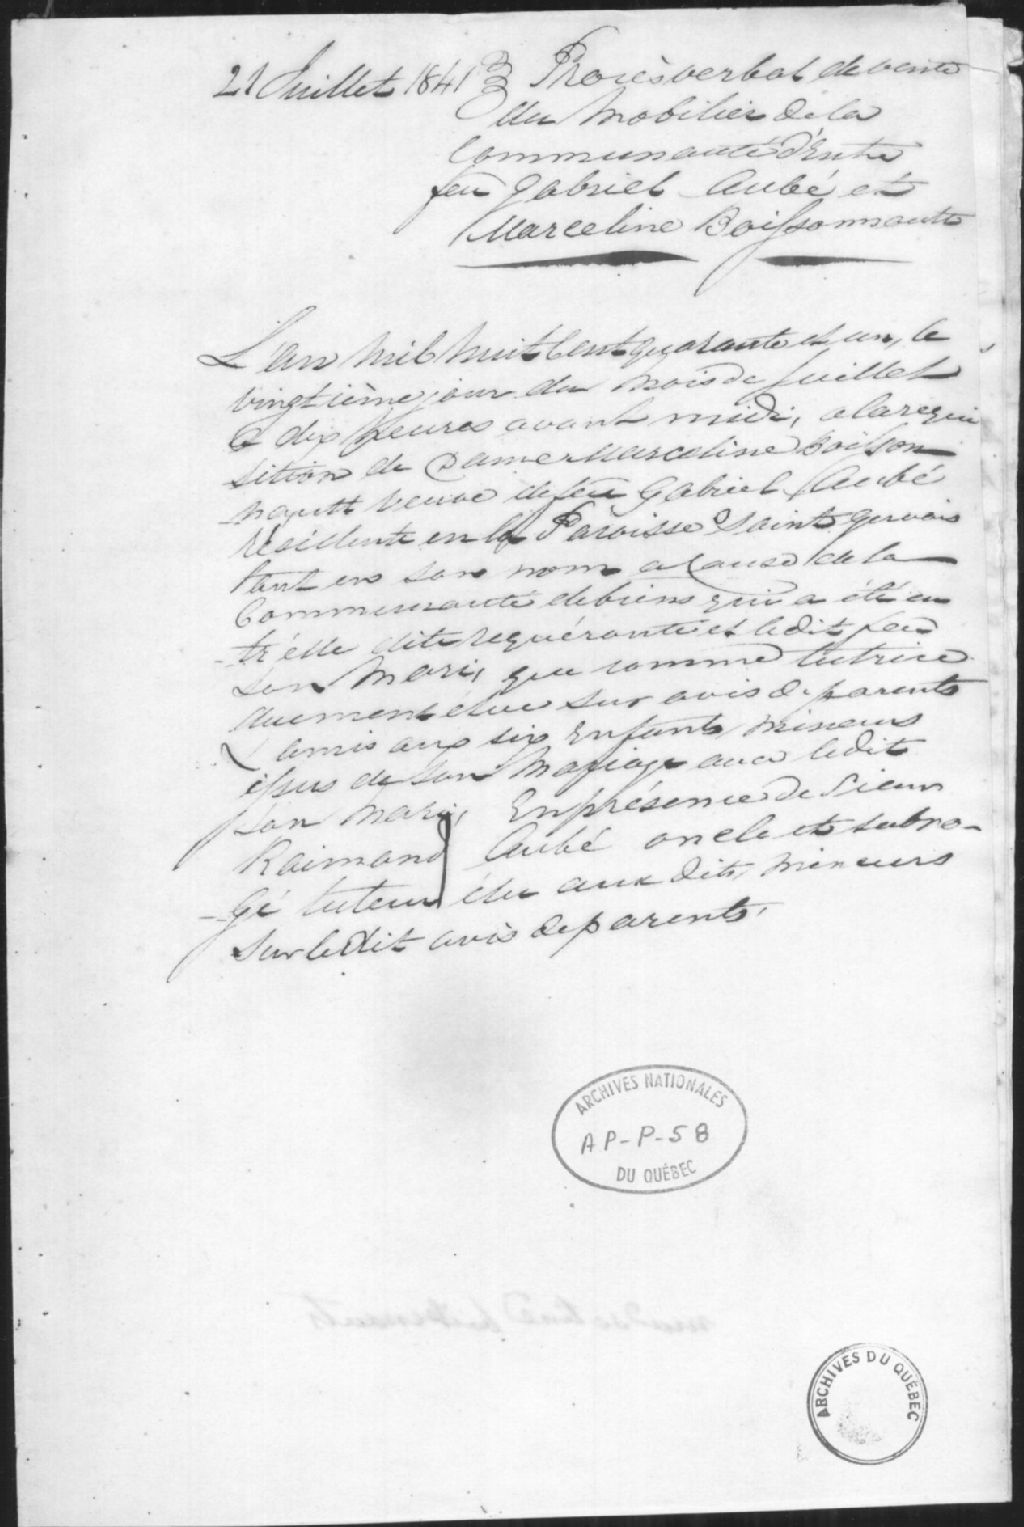 21 Juillet 1841 Procès verbal de vente
du Mobilier de la
Communauté d'Entre
feu Gabriel Aubé et
Marceline Boissonnault
L'an Mil huit Cent quarante et un, le
vingtième jour du mois de Juillet
à dix heures avant midi, a la requi
sition de Dame Marceline Boisson
nault veuve de feu Gabriel Aubé
résidente en la Paroisse Saint Gervais
tant en son nom a Cause de la
Communauté de biens qui a été en
tr'elle dite requérante et le dit feu
son Mari, que comme tutrice
duement élue sur avis de parents
& amis aux six Enfants mineurs
issus de son Mariage avec le dit
son Mari, En présence de Sieur
Raimond Aubé oncle et subro-
-gé tuteur élu aux dits mineurs
sur le dit avis de parents.
ARCHIVES NATIONALES
AP-P-58
DU QUÉBEC
ARCHIVES DU QUÉBEC